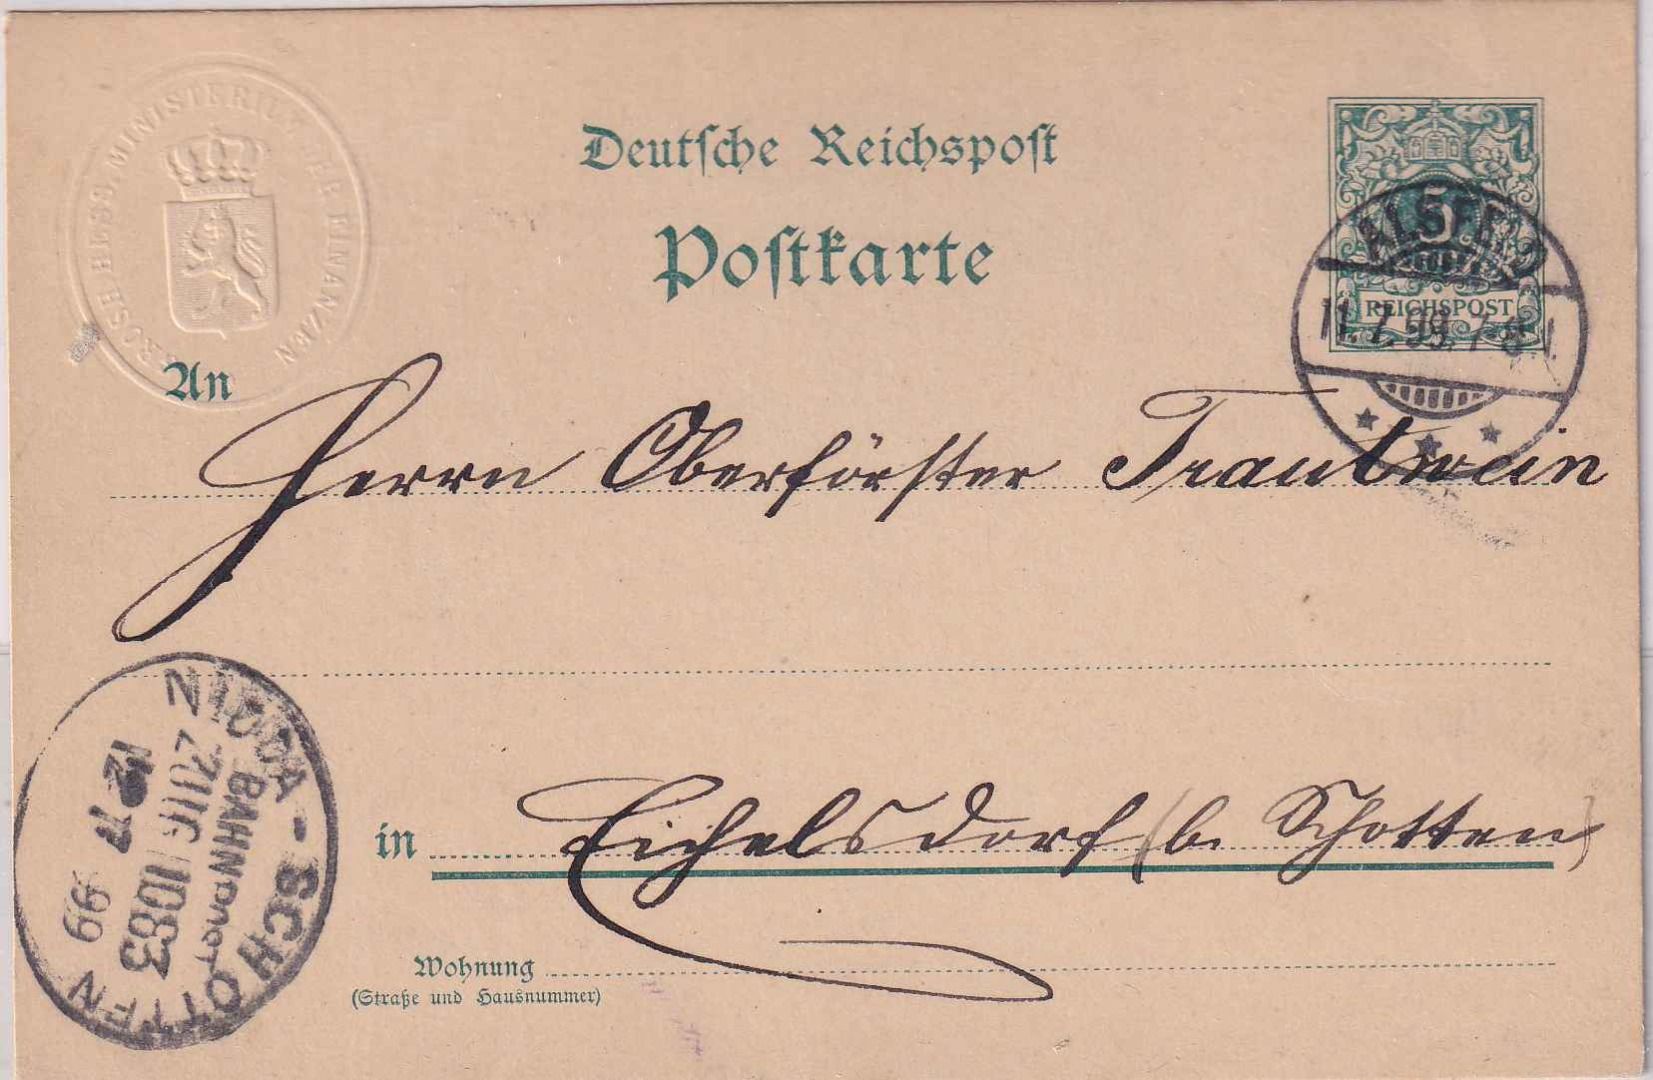 GROSH. HESS. MINISTERIUM DER FINANZEN
Deutsche Reichspost
Postkarte
5
REICHSPOST
ALSFELD
11. 7. 99. 7-8
An
Herrn Oberförster Trautwein
in Eichelsdorf (b. Schotten)
Wohnung
(Straße und Hausnummer)
NIDDA - SCHOTTEN
BAHNPOST
ZUG 1083
12 7 99